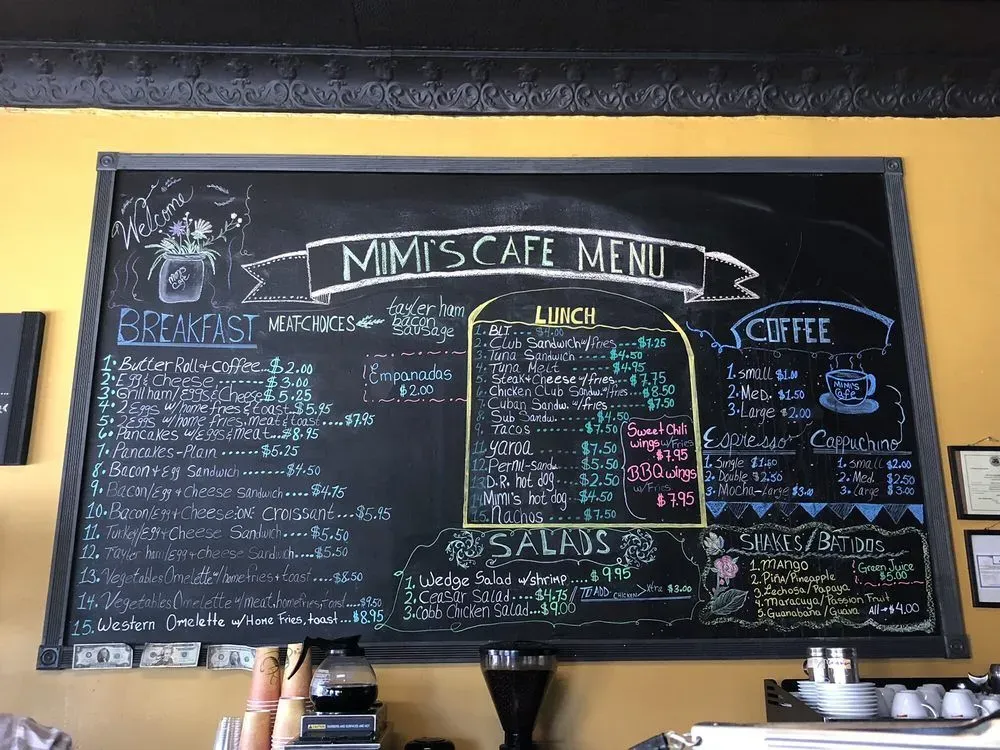 Welcome
Mimi's Cafe
MIMI'S CAFE MENU
BREAKFAST
MEAT-CHOICES
tayler ham
bacon
sausage
1. Butter Roll + coffee... $2.00
2. Egg & Cheese ------- $3.00
3. Grill ham/eggs & Cheese $5.25
4. 2 Eggs w/home fries & toast. $5.95
5. 2 Eggs w/home fries, meat & toast.... $7.95
6. Pancakes w/eggs & meat... $8.95
7. Pancakes-Plain .... $5.25
8. Bacon + Egg Sandwich ---- $4.50
9. Bacon/Egg + Cheese sandwich .... $4.75
10. Bacon/Egg + Cheese: ON: croissant .... $5.95
11. Turkey/Egg + cheese Sandwich .... $5.50
12. Tayler ham/Egg + cheese Sandwich.... $5.50
13. Vegetables Omelette w/home fries + toast .... $8.50
14. Vegetables Omelette w/meat, homefries, toast .... $9.50
15. Western Omelette w/Home Fries, toast.... $8.95
Empanadas
$2.00
LUNCH
1. BLT .... $4.00
2. Club Sandwich w/fries... $7.25
3. Tuna Sandwich ..... $4.50
4. Tuna Melt ------ $4.95
5. Steak + Cheese w/fries.. $7.75
6. Chicken Club Sandw. w/fries... $8.50
7. Cuban Sandw. w/fries... $7.50
8. Sub Sandw. .... $4.50
9. Tacos .... $7.50
11. yaroa $7.50
12. Pernil-sandw $5.50
13. D.R. hot dog $2.50
14. Mimi's hot dog $4.50
15. Nachos .... $7.50
Sweet Chili
wings w/Fries
$7.95
BBQ wings
w/Fries
$7.95
SALADS
1. Wedge Salad w/shrimp .... $9.95
2. Ceasar Salad .... $4.75/ TO ADD CHICKEN Xtra $3.00
3. Cobb Chicken Salad... $9.00
COFFEE
1. small $1.00
2. Med. $1.50
3. Large $2.00
MIMI'S
Cafe
Espresso
1. Single $1.60
2. Double $2.50
3. Mocha-Large $3.00
Cappuchino
1. small $2.00
2. Med. $2.50
3. Large $3.00
SHAKES/BATIDOS
1. MANGO
2. Piña/Pineapple
3. Lechosa/Papaya
4. Maracuya/Passion Fruit
5. Guanabana/Guava All → $4.00
Green Juice
$5.00